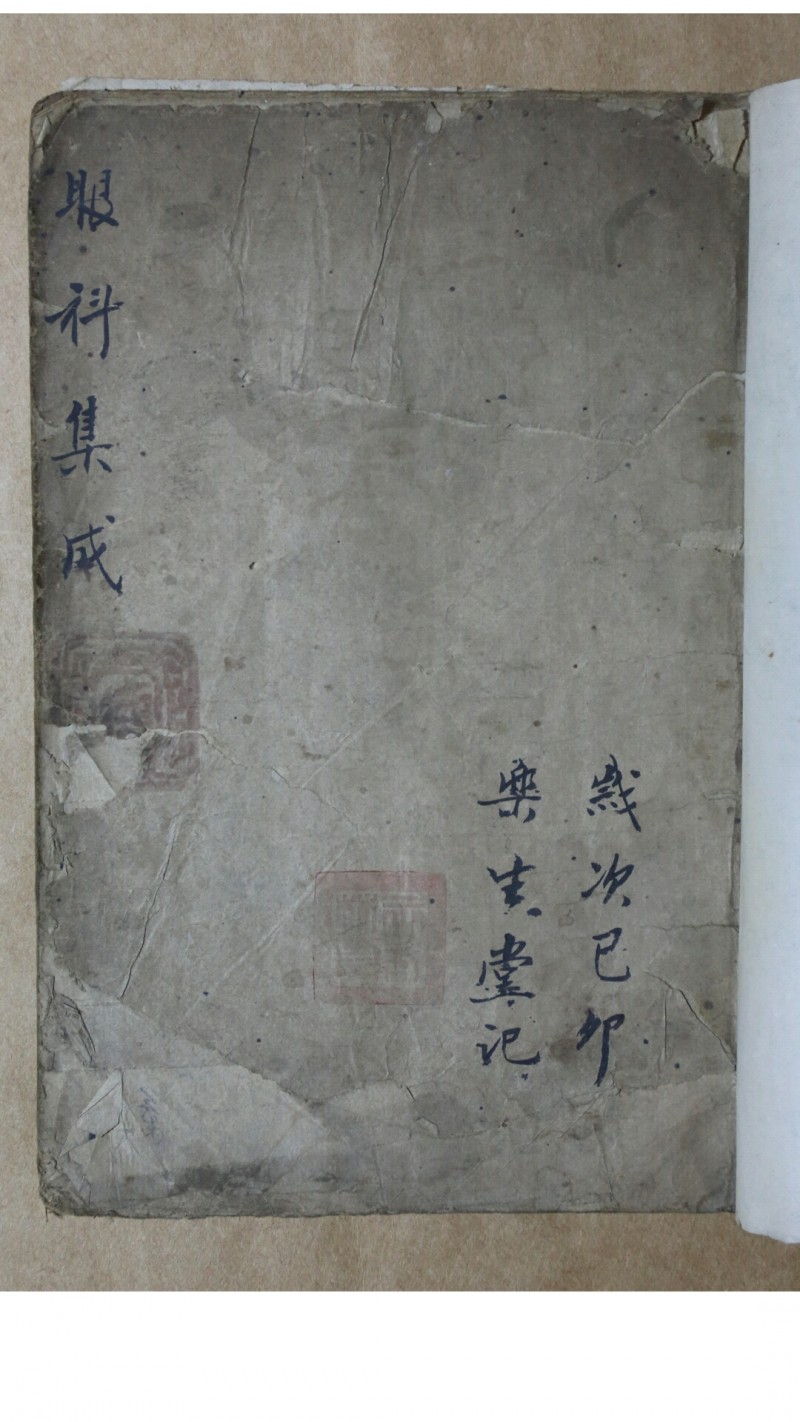 歲次已卯
樂生堂記
眼科集成